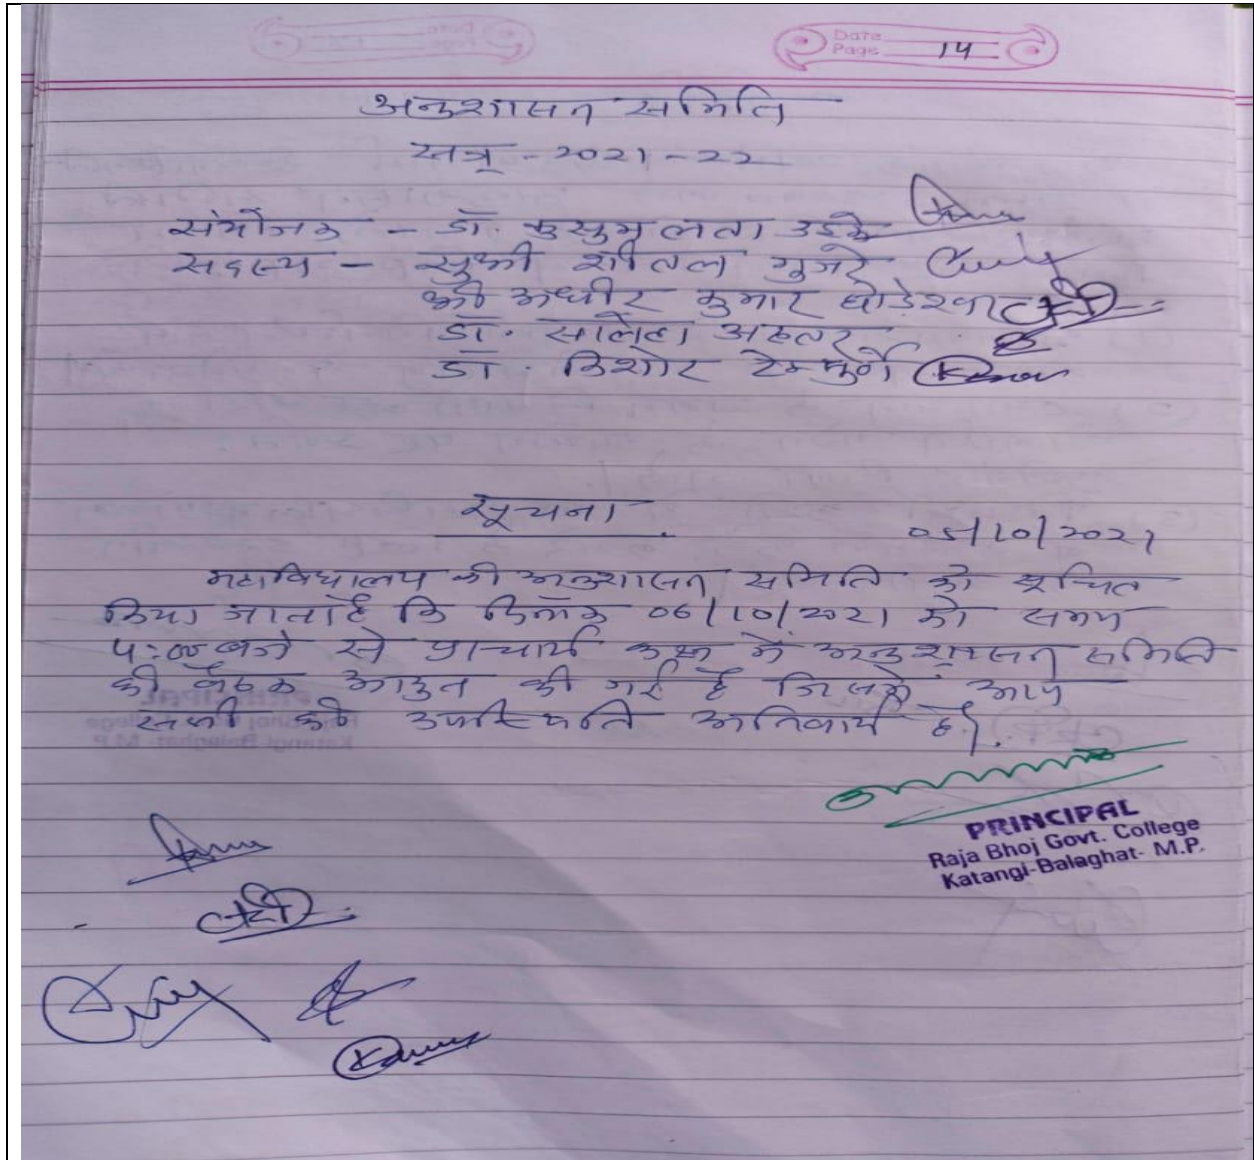 Date
Page 14
अनुशासन समिति
सत्र - 2021-22
संयोजक - डॉ. कुसुम लता उइके
सदस्य - सुश्री शीतल गुजरे
श्री अधीर कुमार घोड़ेश्वार
डॉ. सालेहा अख्तर
डॉ. किशोर टेम्भुर्णे
सूचना
05/10/2021
महाविद्यालय की अनुशासन समिति को सूचित
किया जाता है कि दिनाँक 06/10/2021 को समय
4:00 बजे से प्राचार्य कक्ष में अनुशासन समिति
की बैठक आहुत की गई है जिसमें आप
सभी की उपस्थिति अनिवार्य है।
PRINCIPAL
Raja Bhoj Govt. College
Katangi-Balaghat- M.P.